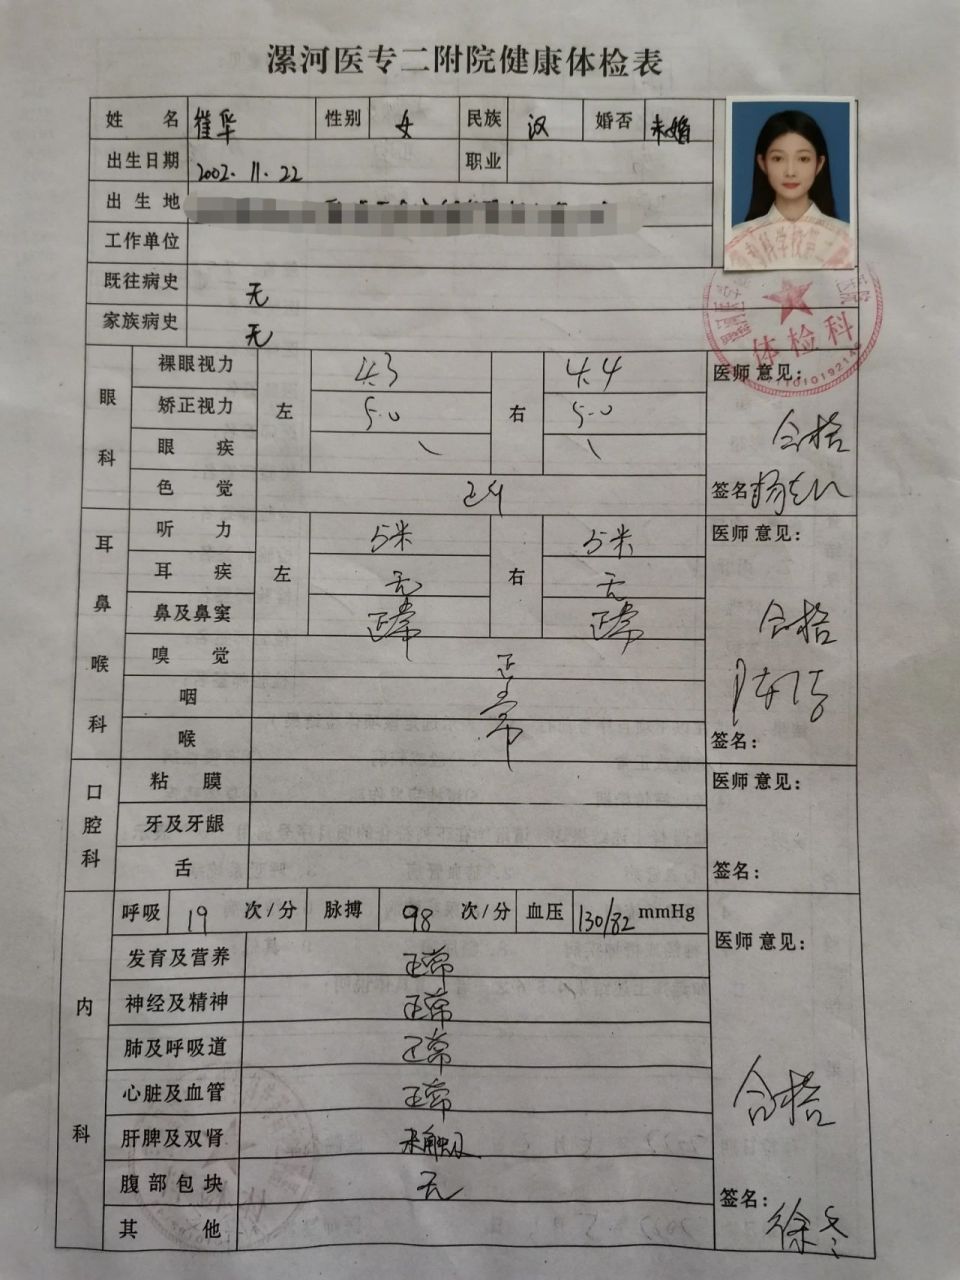 漯河医专二附院健康体检表
姓名 崔华 性别 女 民族 汉 婚否 未婚
出生日期 2002.11.22 职业
出生地
工作单位
既往病史 无
家族病史 无
眼科 裸眼视力 左 4.3 右 4.4 医师意见:
矫正视力 5.0 5.0
眼疾 \ \ 合格
色觉 正常 签名
耳鼻喉科 听力 左 5米 右 5米 医师意见:
耳疾 无 无
鼻及鼻窦 正常 正常 合格
嗅觉 正常
咽
喉 签名:
口腔科 粘膜 医师意见:
牙及牙龈
舌 签名:
内科 呼吸 19 次/分 脉搏 98 次/分 血压 130/82 mmHg 医师意见:
发育及营养 正常
神经及精神 正常
肺及呼吸道 正常
心脏及血管 正常 合格
肝脾及双肾 未触及
腹部包块 无 签名: 徐冬
其他
体检科